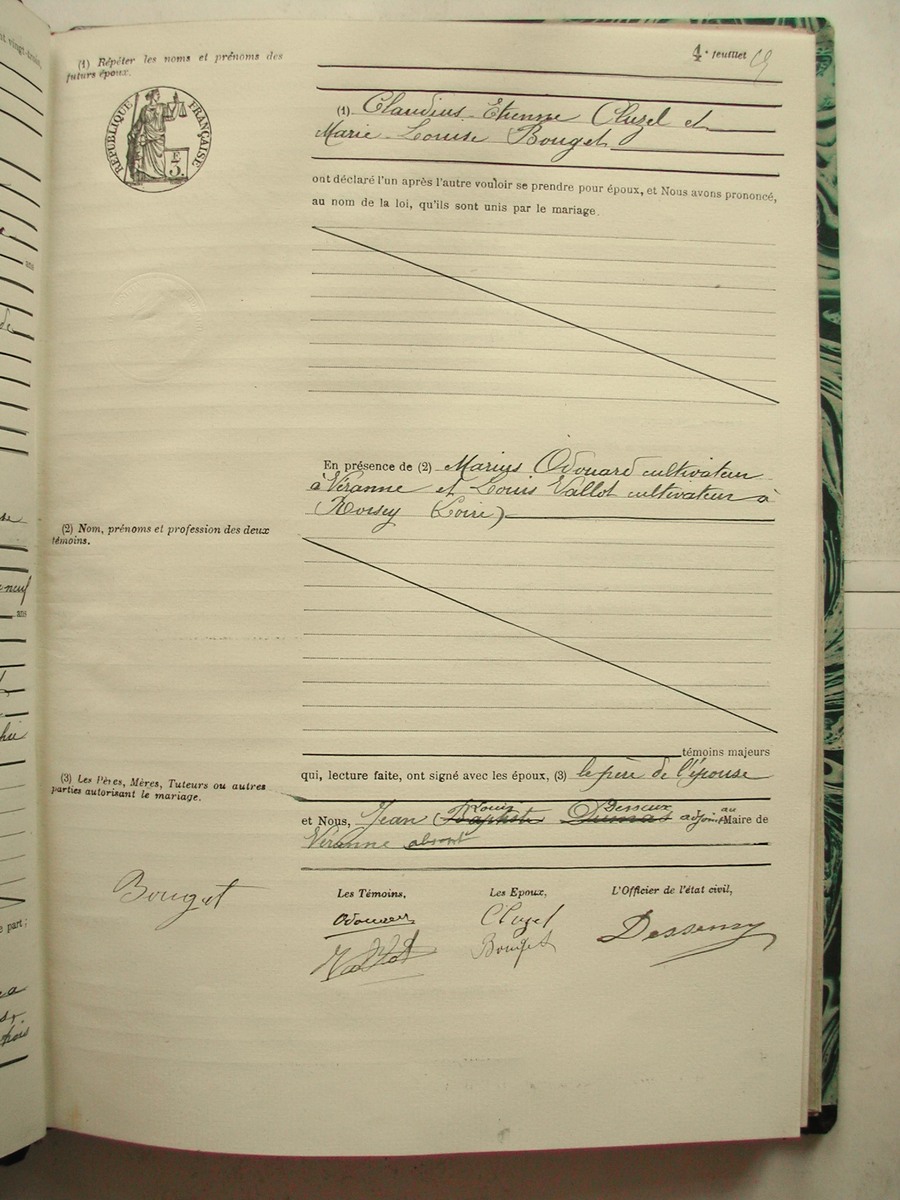 4e feuillet
(1) Répéter les noms et prénoms des
futurs époux.
RÉPUBLIQUE FRANÇAISE
F
3.
(1) Claudius Etienne Cluzel et
Marie-Louise Bouget
ont déclaré l'un après l'autre vouloir se prendre pour époux, et Nous avons prononcé,
au nom de la loi, qu'ils sont unis par le mariage.
En présence de (2) Marius Odouard cultivateur
à Véranne et Louis Vallot cultivateur à
Roisey (Loire)
(2) Nom, prénoms et profession des deux
témoins.
témoins majeurs
qui, lecture faite, ont signé avec les époux, (3) le père de l'épouse
(3) Les Pères, Mères, Tuteurs ou autres
parties autorisant le mariage.
Louis au
et Nous, Jean Baptiste Dumas adjoint Maire de
Véranne absent
Les Témoins, Les Epoux, L'Officier de l'état civil,
Bouget
Cluzel
Vallot Bouget